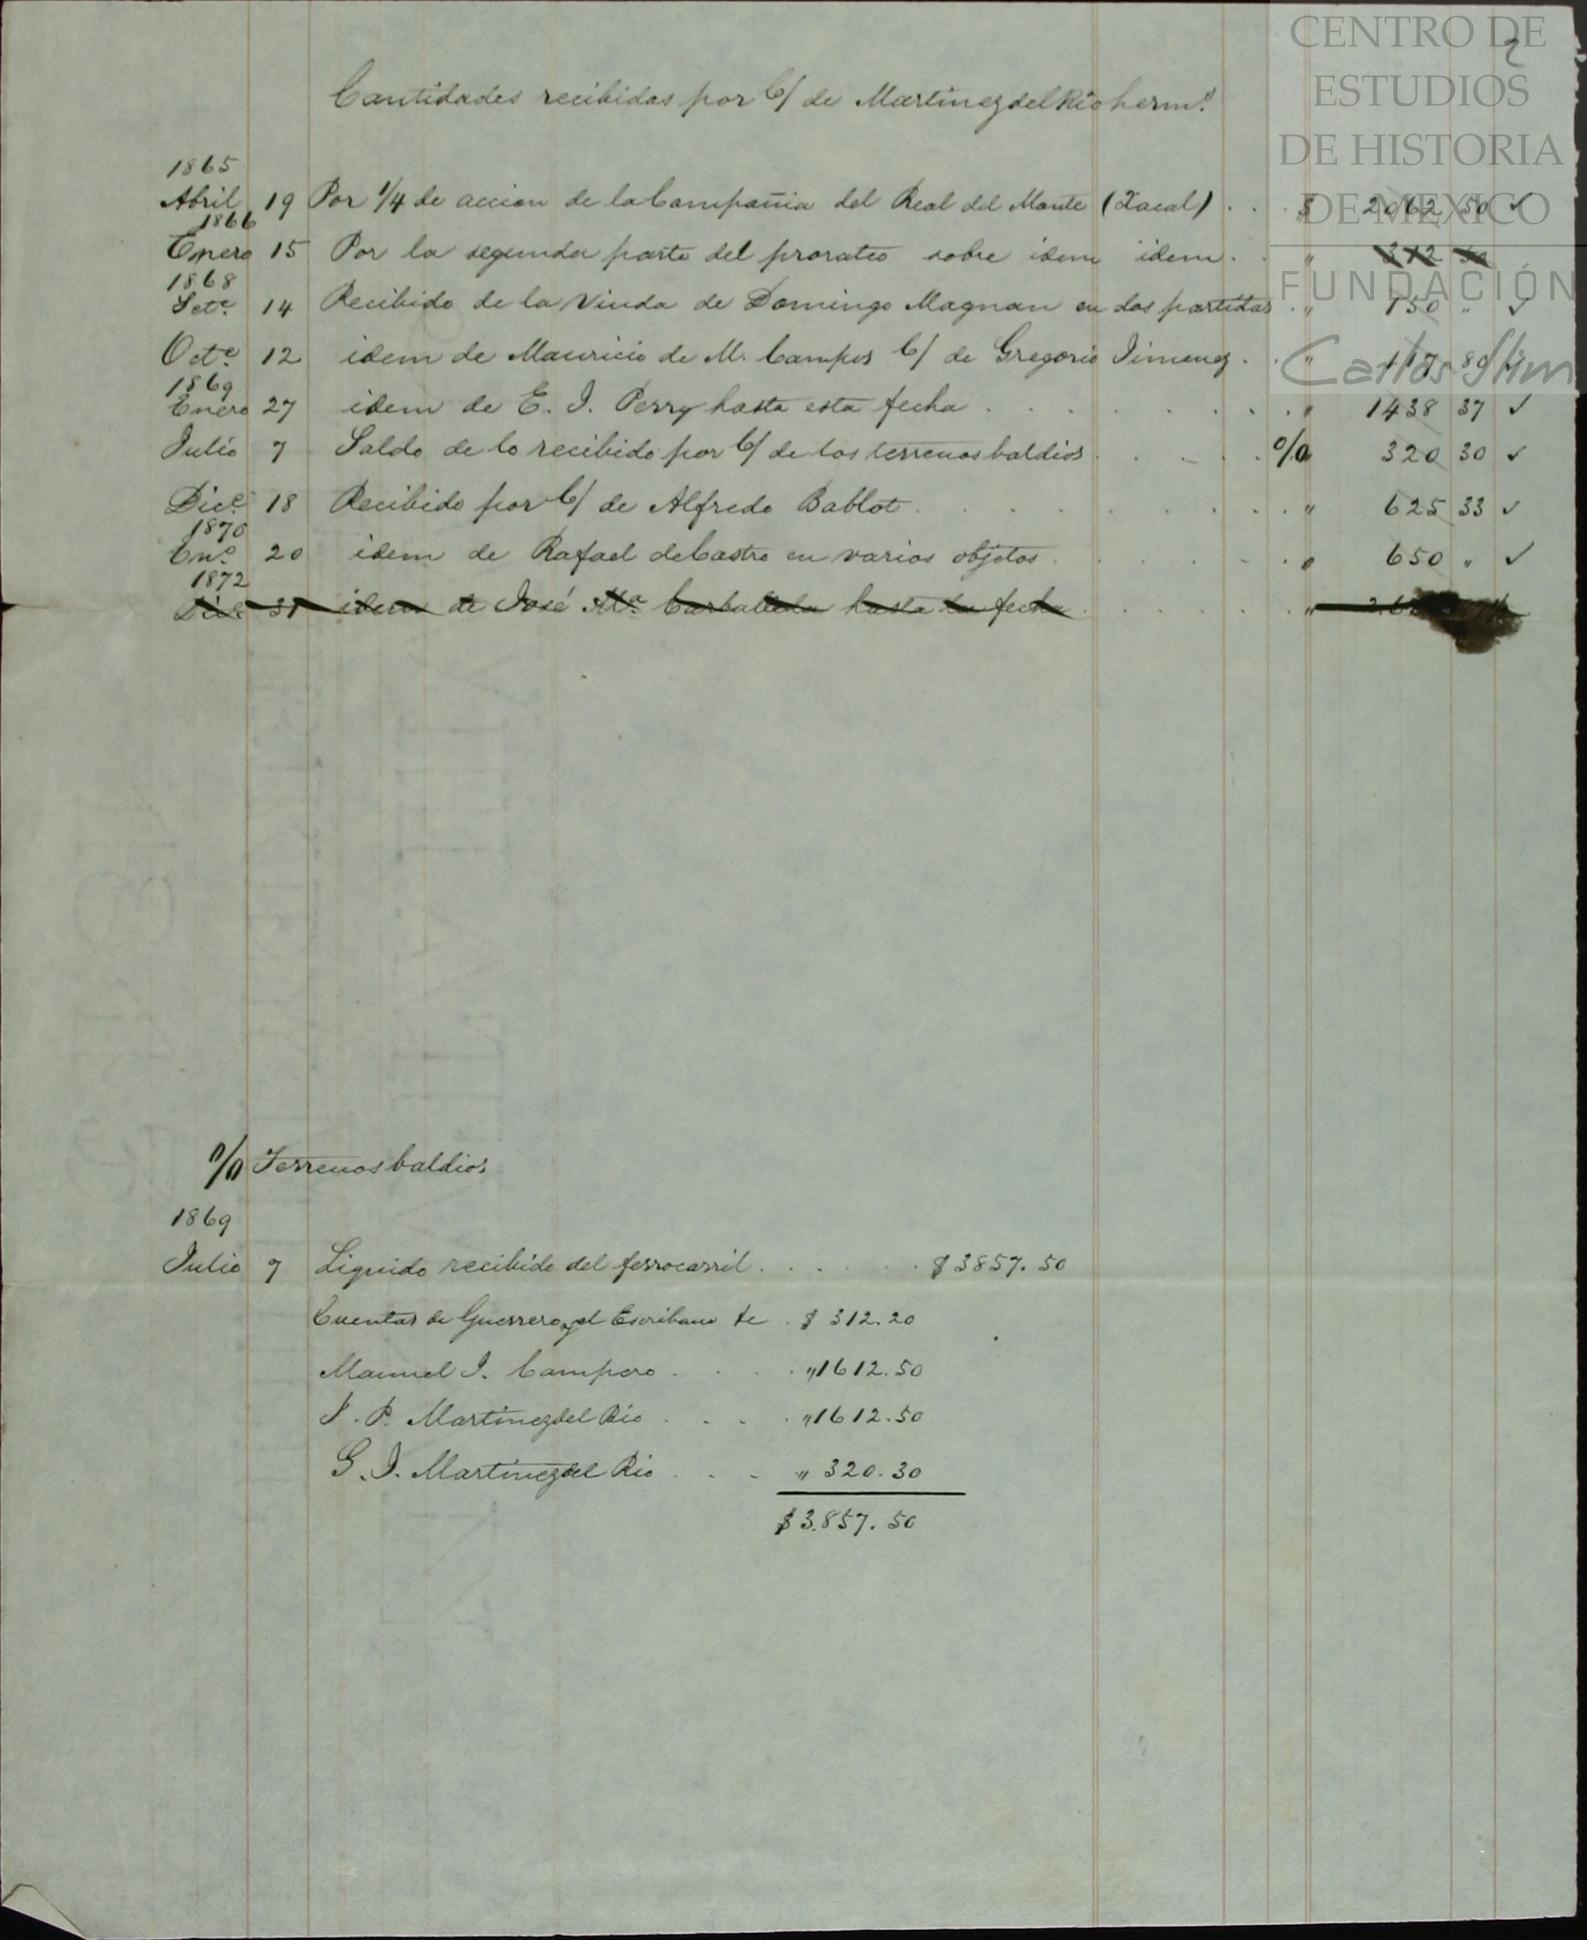 CENTRO DE
ESTUDIOS
DE HISTORIA
DE MEXICO
FUNDACIÓN
Carlos Slim
2
Cantidades recibidas por C/ de Martinez del Rio herm.s
1865
Abril 19 Por 1/4 de accion de la Compañia del Real del Monte ( . . $ 2062 50 ✓
1866
Enero 15 Por la segunda parte del prorateo sobre idem idem . " 312
1868
Set.e 14 Recibido de la Viuda de Domingo Magnan en dos partidas . " 150 " ✓
Oct.e 12 idem de Mauricio de M. Campos C/ de Gregorio Jimenez . . " 117 80 ✓
1869
Enero 27 idem de E. J. Perry hasta esta fecha . . . . . . . " 1438 37 ✓
Julio 7 Saldo de lo recibido por C/ de los terrenos baldios . . . . % " 320 30 ✓
Dice. 18 Recibido por C/ de Alfredo Bablot . . . . . . . . " 625 33 ✓
1870
En.o 20 idem de Rafael de Castro en varios objetos . . . . . . " 650 " ✓
1872
Dice. 31 idem de José Ma. Carballeda hasta la fecha . . . . . . "
% Terrenos baldios
1869
Julio 7 Liquido recibido del ferrocarril . . . . . . $ 3857. 50
Cuentas de Guerrero y el Escribano &c . $ 312. 20
Manuel J. Campero . . . . " 1612. 50
J. P. Martinez del Rio . . . . " 1612. 50
G. J. Martinez del Rio . . . " 320. 30
$ 3.857. 50